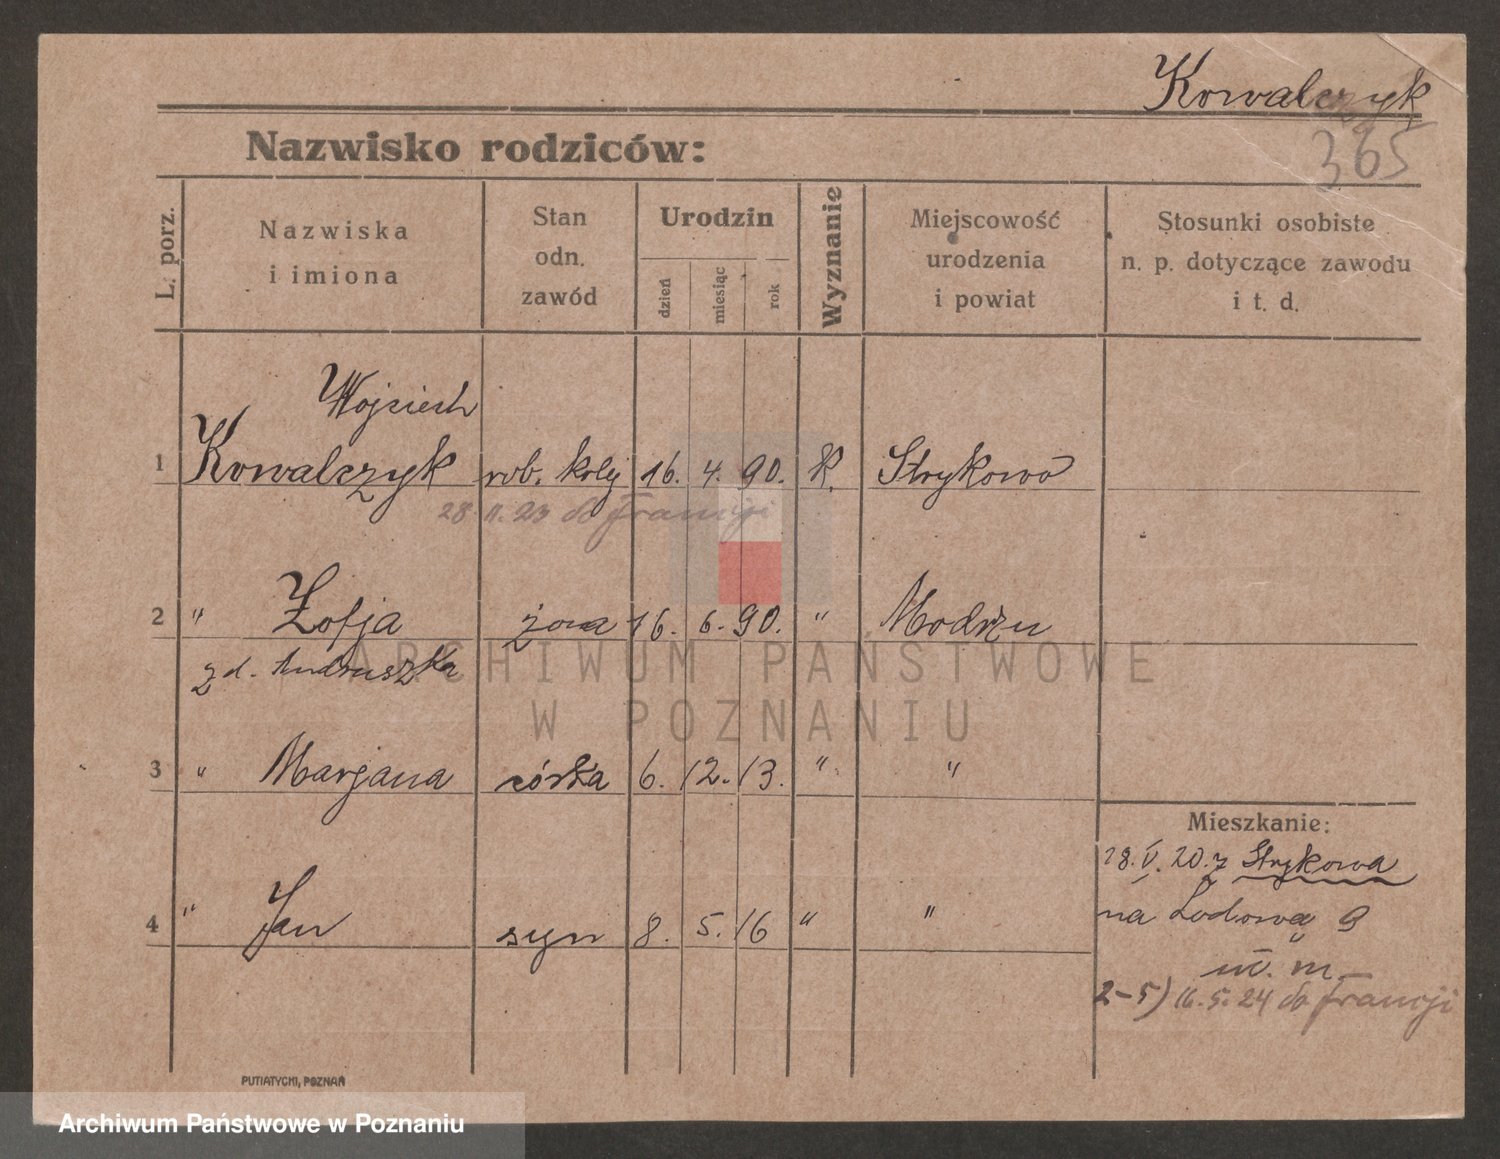 Kowalczyk
365
Nazwisko rodziców:
L. porz.
Nazwiska
i imiona
Stan
odn.
zawód
Urodzin
dzień
miesiąc
rok
Wyznanie
Miejscowość
urodzenia
i powiat
Stosunki osobiste
n. p. dotyczące zawodu
i t. d.
Wojciech
1 Kowalczyk rob. kolej 16. 4. 90. K. Strykowo
28. 11. 23 do Francji
2 " Zofja żona 16. 6. 90. " Modrzu
z d. Andruszka
3 " Marjana córka 6. 12. 13. " "
4 " Jan syn 8. 5. 16 " "
Mieszkanie:
28. V. 20. z Strykowa
na Lodowa 9
w. m.
2-5) 16. 5. 24 do Francji
PUTIATYCKI, POZNAŃ
ARCHIWUM PAŃSTWOWE
W POZNANIU
Archiwum Państwowe w Poznaniu